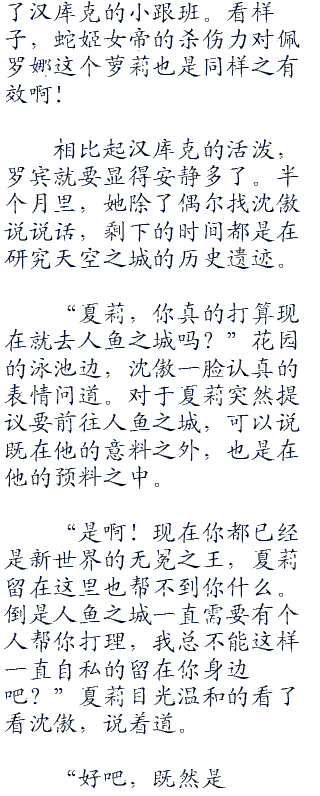 了汉库克的小跟班。看样
子，蛇姬女帝的杀伤力对佩
罗娜这个萝莉也是同样之有
效啊！
相比起汉库克的活泼，
罗宾就要显得安静多了。半
个月里，她除了偶尔找沈傲
说说话，剩下的时间都是在
研究天空之城的历史遗迹。
“夏莉，你真的打算现
在就去人鱼之城吗？”花园
的泳池边，沈傲一脸认真的
表情问道。对于夏莉突然提
议要前往人鱼之城，可以说
既在他的意料之外，也是在
他的预料之中。
“是啊！现在你都已经
是新世界的无冕之王，夏莉
留在这里也帮不到你什么。
倒是人鱼之城一直需要有个
人帮你打理，我总不能这样
一直自私的留在你身边
吧？”夏莉目光温和的看了
看沈傲，说着道。
“好吧，既然是